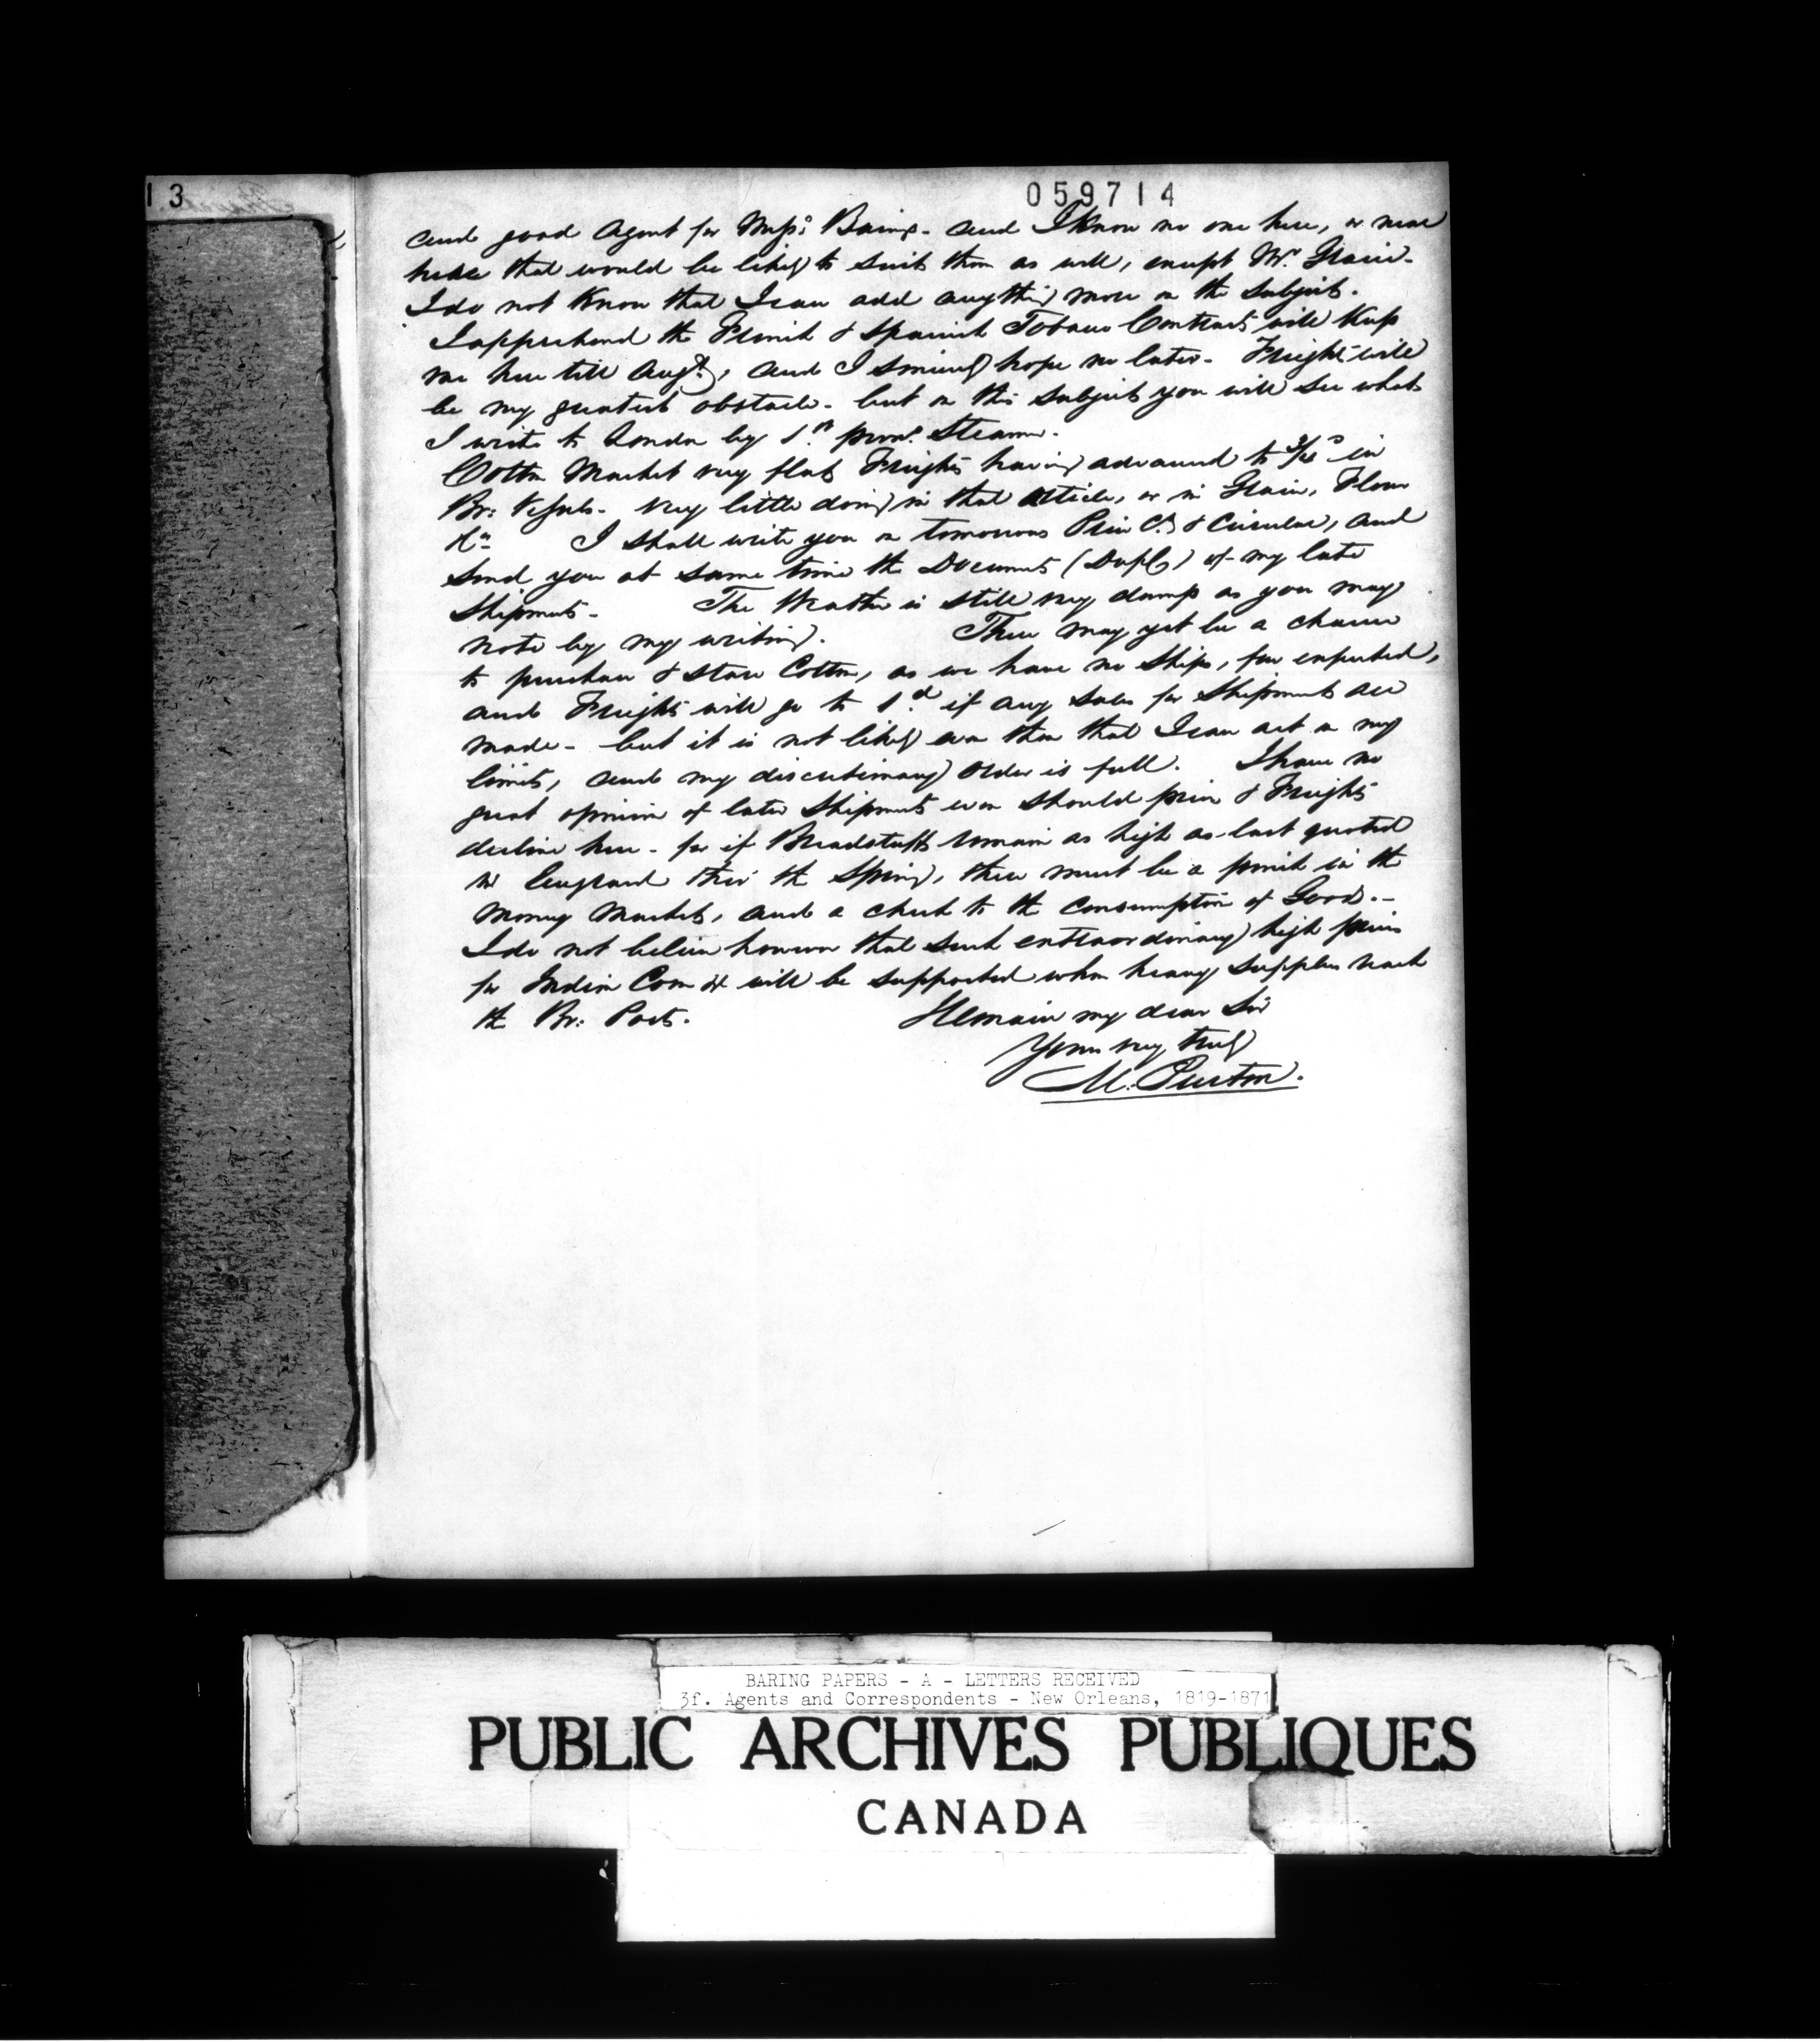 13
059714
and good Agent for Messrs Barings - and I know no one here, or near
here that would be likely to suit them as well, except Mr. Grain -
I do not know that I can add anything more on the Subject.
I apprehend the French & Spanish Tobacco Contracts will keep
me here till Augt, and I sincerely hope no later - Freights will
be my greatest obstacle - but on this subject you will see what
I write to London by 1st Steamer.
Cotton Market very flat Freights having advanced to 3/4d in
Br: Vessels - very little doing in that Article, or in Grain, Flour
&c I shall write you on tomorrows Price Ct & Circular, and
send you at same time the Documents (Dupl) of my late
Shipments - The Weather is still very damp as you may
note by my writing. There may yet be a chance
to purchase & store Cotton, as we have no Ships, few expected,
and Freights will go to 1d if any sales for Shipments are
made - but it is not likely even then that I can act on my
limits, and my discretionary Order is full. I have no
great opinion of later Shipments even should price & Freights
decline here - for if Breadstuffs remain as high as last quoted
in England thro' the Spring, there must be a in the
Money Market, and a check to the consumption of Goods. -
I do not believe however that such extraordinary high prices
for Indian Corn &c will be supported when heavy supplies reach
the Br: Ports. I Remain my dear Sir
Yours very truly
BARING PAPERS - A - LETTERS RECEIVED
3f. Agents and Correspondents - New Orleans, 1819-1871
PUBLIC ARCHIVES PUBLIQUES
CANADA